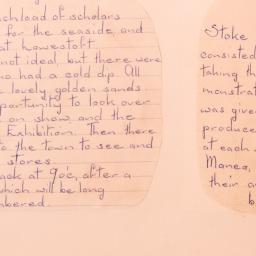 chload of scholars
for the seaside, and
at Lowestoft
not ideal, but there were
ho had a cold dip. All
lovely golden sands
portunity to look over
on show and the
Exhibition. Then there
to the town to see and
stores
ack at 9oc, after a
which will be long
mbered.
Stoke
consisted
taking th
monstrat
was give
produce
at each
Manea,
their a
b